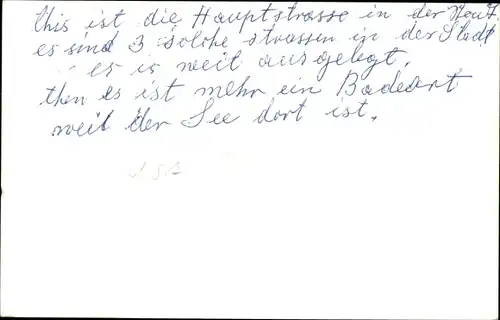 this ist die Hauptstrasse in der
es sind 3 solche strassen in der Stadt
es is weit ausgelegt,
then es ist mehr ein Badeort
weil der See dort ist.
USA